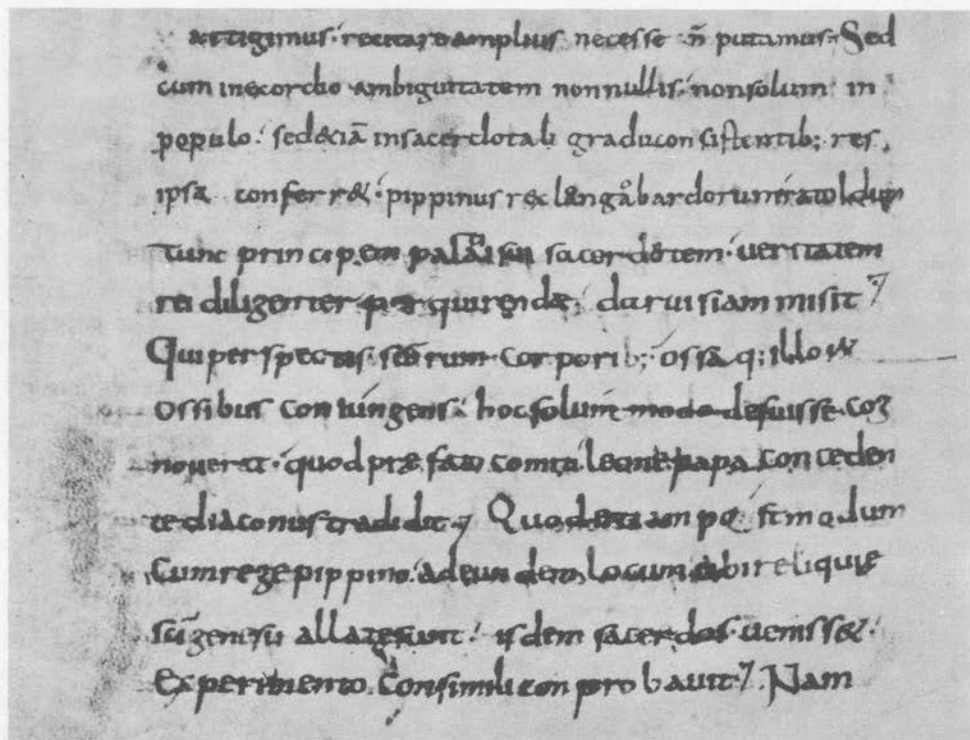 attigimus· recitare amplius necesse n̄ putamus· Sed
cum inexordio ambiguitatem nonnullis· nonsolum in
populo· sed&iā insacerdotali graduconsistentib; res
ipsa conferr&· pippinus rex langobardorum ratoldum
tunc principem palatii sui sacerdotem· veritatem
rei diligenter quirendę· darvisiam misit
Qui perspectis· scōrum corporib; ossaq; illow
ossibus contingens· hocsolum modo defuisse cog
noverat· quodpręfato comiti leone papa conceden
te diaconus tradidit· Quod&iam postmodum
Cumrege pippino· adeundem locum ubi reliquię
sc̄i genesii allatę sunt· isdem sacerdos venisse&·
Experimento Consimili conprobavit· Nam